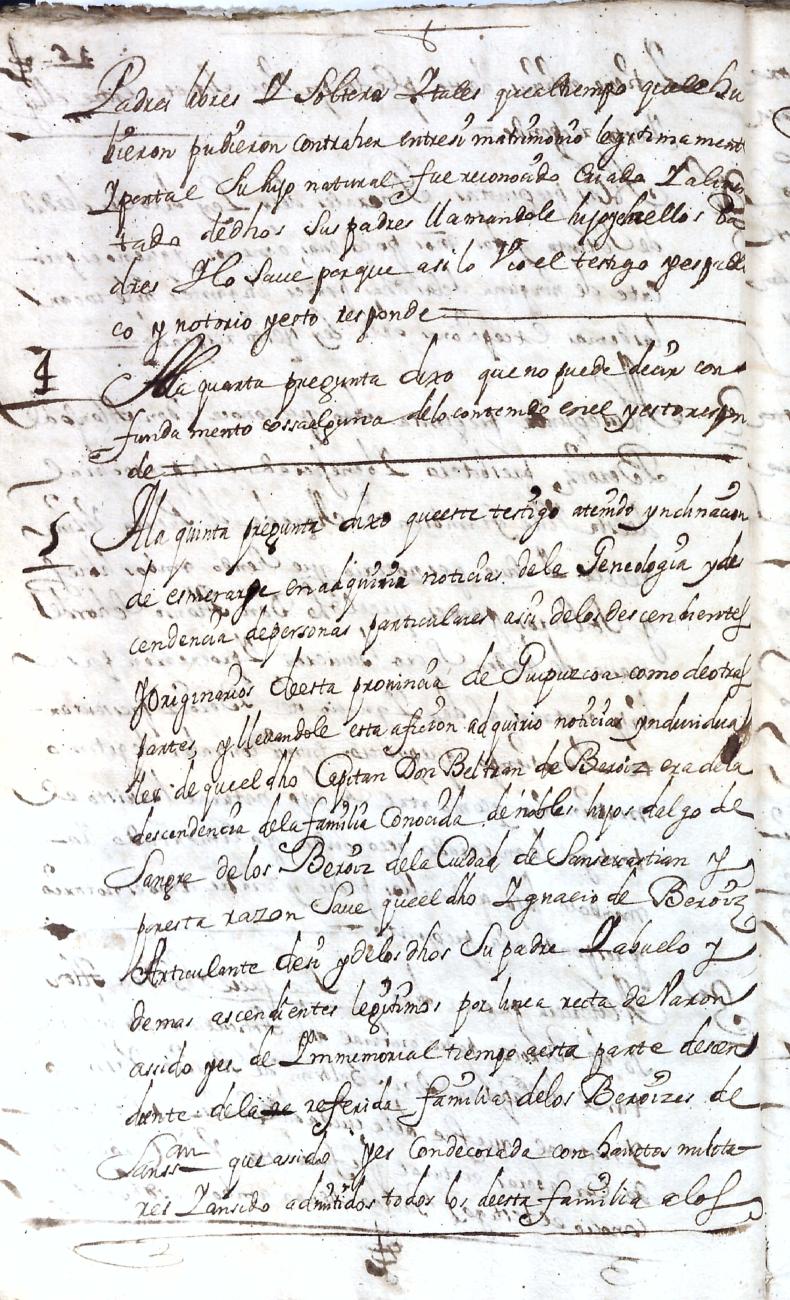 Padres libres Y Solteros Y tales que al tiempo que le hu
bieron pudieron contraher entre si matrimonio legitimament
Y por tal Su hijo natural fue reconocido Criado Y alimen
tado de dhos Sus padres llamandole hijo y el a ellos Pa
dres Y lo Save porque asi lo Vio el testigo y es publi
co y notorio y esto responde
4
A la quarta pregunta dixo que no puede decir con
fundamento cossa alguna de lo contenido en el y esto respon
de
5
A la quinta pregunta dixo que este testigo a tenido ynclinacion
de esmerarse en adquirir noticias de la Geneologia y des
cendencia de personas particulares asi de los descendientes
Y Originarios de esta provincia de Guipuzcoa como de otras
partes y llevandole esta aficion adquirio noticias yndividua
les de que el dho Capitan Don Beltran de Beroiz era de la
descendencia de la familia Conocida de nobles hijos dalgo de
Sangre de los Beroiz de la Ciudad de San sevastian y
por esta razon Save que el dho Ygnacio de Beroiz
Articulante de si y de los dhos Su padre Y abuelo y
demas ascendientes legitimos por linea recta de Varon
a ssido y es de Ynmemorial tiempo a esta parte descen
diente de la referida familia de los Beroizes de
Sanss.an que a ssido y es Condecorada con havitos milita
res Y an sido admitidos todos los de esta familia a los